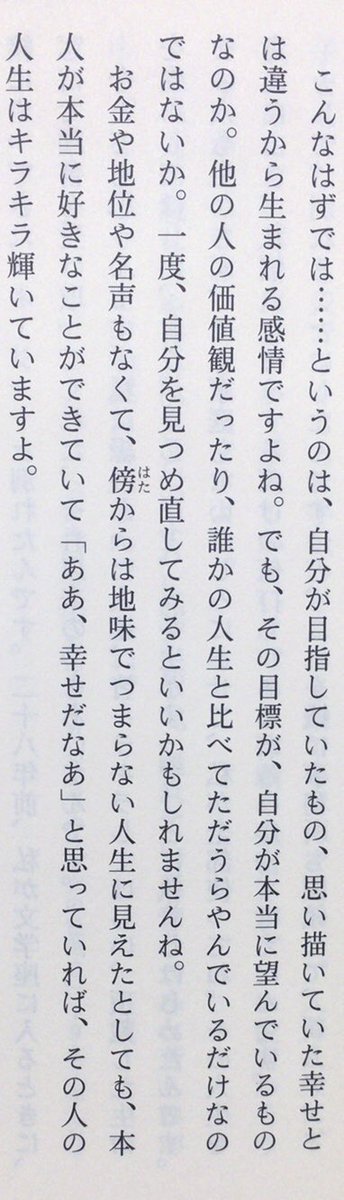 こんなはずでは……というのは、自分が目指していたもの、思い描いていた幸せと
は違うから生まれる感情ですよね。でも、その目標が、自分が本当に望んでいるもの
なのか。他の人の価値観だったり、誰かの人生と比べてただうらやんでいるだけなの
ではないか。一度、自分を見つめ直してみるといいかもしれませんね。
お金や地位や名声もなくて、傍からは地味でつまらない人生に見えたとしても、本
はた
人が本当に好きなことができていて「ああ、幸せだなあ」と思っていれば、その人の
人生はキラキラ輝いていますよ。